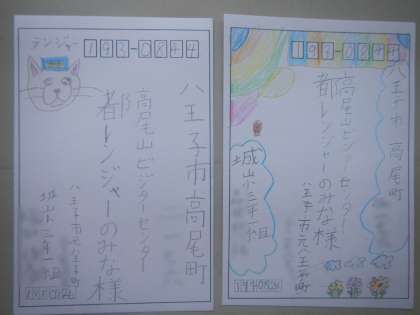 テンジャー
193-0844
八王子市高尾町
高尾山ビジターセンター
都レンジャーのみな様
八王子市元八王子町
城山小三年一組
193-0844
八王子市 高尾町
高尾山ビジターセンター
都レンジャーのみな様
八王子市元八王子町
城山小三年一組